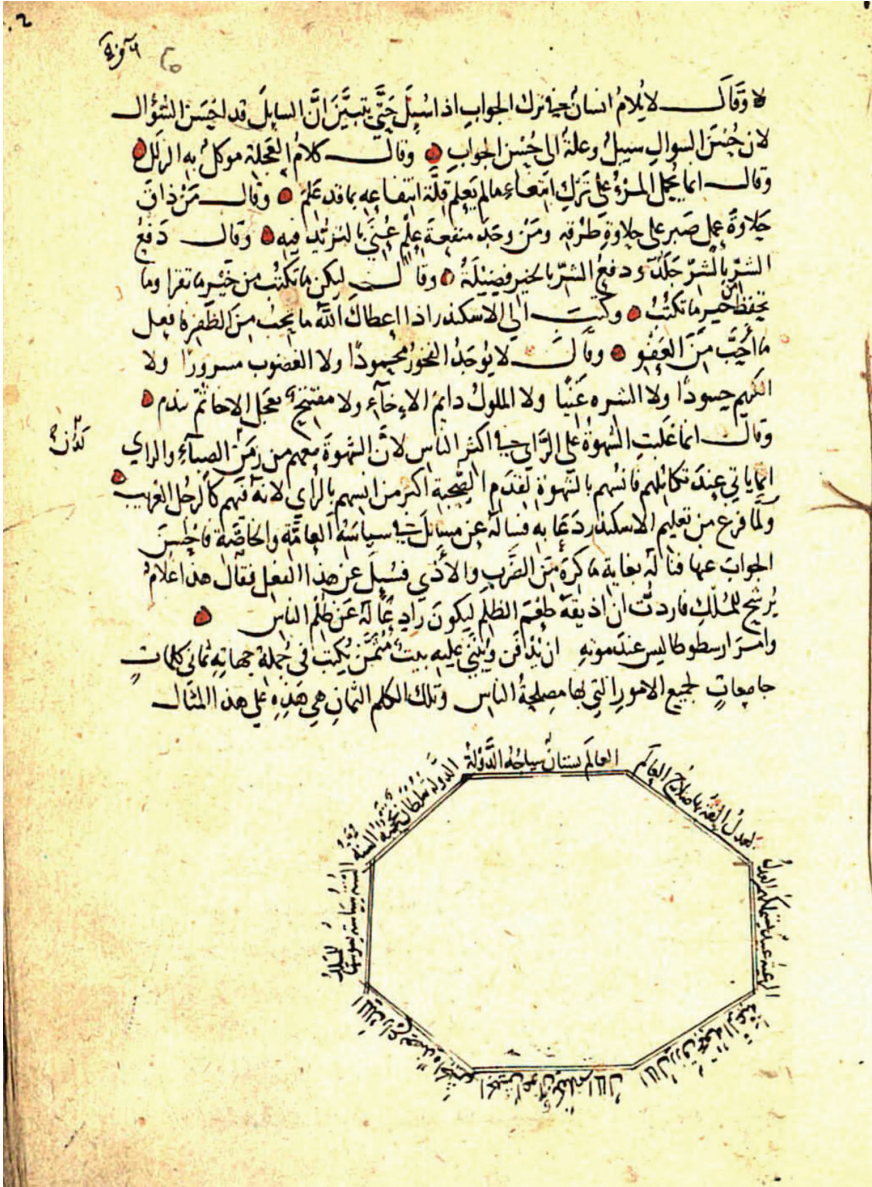 وقال لا يُلامُ انسانٌ في ترك الجواب اذا سُيِلَ حَتَّى يتبيَّنَ انَّ السايلَ قد احسَنَ السُّؤالَ
لان حُسْنَ السوالِ سبيلٌ وعلةٌ الى حُسْن الجوابِ وقال كلامُ العَجلة موكلٌ به الزلل
وقال انما يحمل المرْءَ على تَركِ ابتغاءِ مالم يَعلم قلَّة انتفاعِه بما قد عَلِمَ وقال مَنْ ذاقَ
حَلاوةَ عمل صَبر على حلاوة طرقه ومَنْ وجَدَ منفعةَ علمٍ عُنىَ بالتزيُّد فيه وقال دَفعُ
الشرِّ بالشرِّ جَلَدٌ ودفعُ الشرِّ بالخير فضيْلَةٌ وقال ليكن ما تكتُبُ من خَيْر ما تقرا وما
تحفظ من خير ما تكتُبُ وكتَبَ الي الاسكندر اذا اعطاكَ اللّٰه ما يحبُ منَ الظفَر فافعل
ما أحَبَّ مِنَ العَفْوِ وقال لا يُوجَدُ الفخورُ محمودًا ولا الغضوب مسرورًا ولا
الكريم حسودًا ولا الشره غَنيًا ولا الملولُ دايمَ الاخآءِ ولا مفتتحٌ يعجل الاخا ثم يندم
وقال انما غَلبَتِ الشهوةُ على الرَّاي في اكثر الناس لانَّ الشهوةَ معهم من زمَن الصبآءِ والراي
انما ياتي عِندَ تكاملهم فانسُهم بالشهوة لقِدَم الصُّحبة اكثر من انسهم بالراي لانه فيهم كالرجُل الغريب
ولمَّا فرغ من تعليم الاسكندر دَعَا به فسالهُ عن مسائلَ في سياسَة العامَّة والخاصَّة فاحسنَ
الجوابَ عنها فنالهُ بغاية ما كَرهَ منَ الضَّربِ والأذي فسُيل عن هذا الفعل فقال هذا غلامٌ
يُرشح للمُلكِ فاردتُ ان اذيقَهُ طعْمَ الظُلم ليكونَ رادِعًا لهُ عَن ظُلم الناس
وامرَ ارسطوطاليس عندَ موتهِ ان يُدفَنَ ويُبْنَي عليه بَيتٌ مُثمَّنٌ يُكتبُ في جُملة جهاتِه ثماني كلماتٍ
جامِعاتٍ لجميع الامورِ التي بها مصلحةُ الناس وتلك الكلم الثمانِ هي هَذِهِ علي هذا المثال
العالَم بستانٌ سياجُه الدَّوْلَةُ
الدولة سُلطانٌ تحجبهُ السُنَّة
السُنَّة
الملكُ راعٍ يعضده الجيشُ
الجيش اعوانٌ يكفلهم المالُ
المال رزقٌ تجمعهُ الرعيَّة
الرعية عبيدٌ يتملكهم العدلُ
العدلُ الفة بها صَلاحُ العالَم